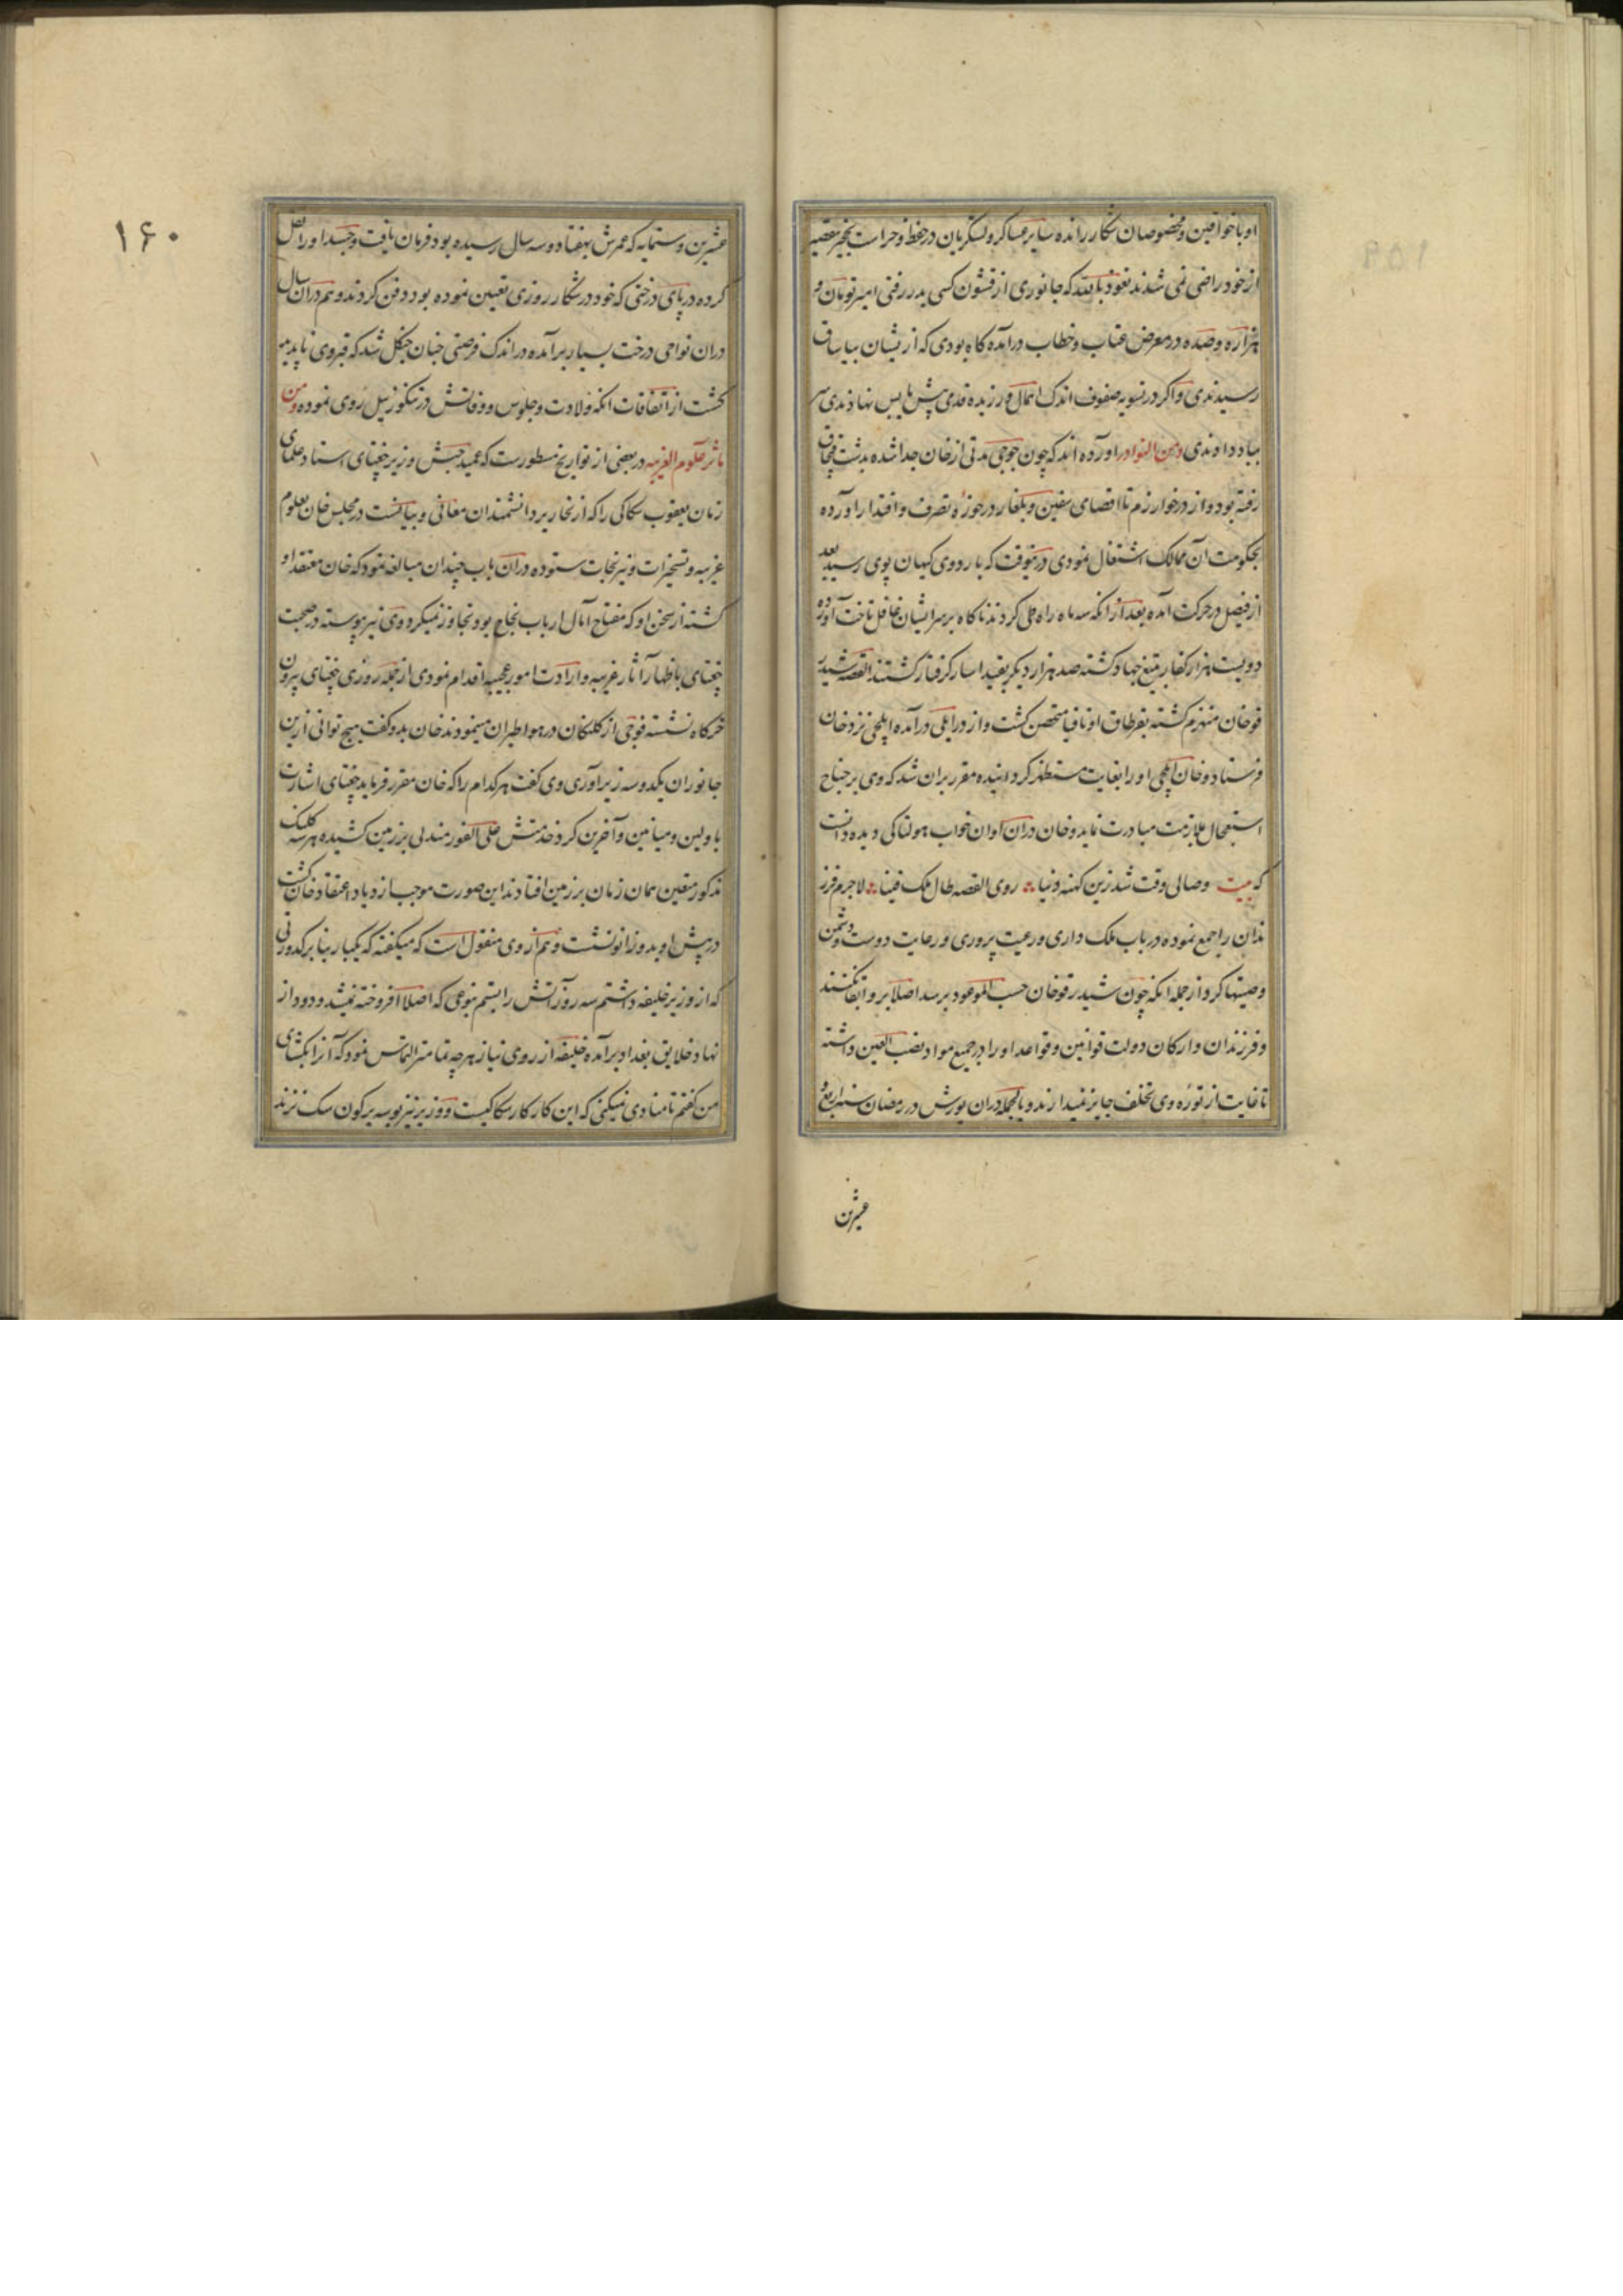 او با خواقین و مخصوصان شکار رانده سایر عساکر و لشکریان در حفظ و حراست نخجیر تقصیر
از خود راضی نمی شدند نعوذ بالله که جانوری از قشون کسی بدر رفتی امیر تومان و
هزاره و صده در معرض عتاب و خطاب درآمده گاه بودی که از یشان بیاساق
رسیدندی و اگر در تسویه صفوف اندک اهمال ورزیده قدمی پیش یا پس نهادندی سر
بباد دادندی ومن النوادر آورده اند که چون جوجی مدتی از خان جدا شده بدشت قبچاق
رفته بود و از در خوارزم تا اقصای سقین و بلغار در حوزه تصرف و اقتدار آورده
بحکومت آن ممالک اشتغال نمودی درینوقت که باردوی کیهان پوی رسید بعد
از فیصل در حرکت آمده بعد از انکه سه ماه راه طی کردند ناگاه بر سر ایشان غافل تاخت آورده
دویست هزار کفار بتیغ جهاد کشته صد هزار دیگر بقید اسار گرفتار گشتند القصه شیدر
قو خان منهزم گشته بقرطاق او تاقیا متحصن گشت و از در ایلی درآمده ایلچی نزد خان
فرستاد و خان ایلچی او را بغایت مستظهر گردانیده مقرر بران شد که وی بر جناح
استعجال بملازمت مبادرت نماید و خان دران اوان خواب هولناکی دیده دانست
که بیت وصالی وقت شد زین کهنه دنیا روی القصه طال ملک فینا لاجرم فرز
ندان را جمع نموده در باب ملک داری و رعیت پروری و رعایت دوست و دشمن
وصیتها کرد از جمله انکه چون شیدرقو خان حسب الموعود برسد اصلا برو ابقا نکنند
و فرزندان و ارکان دولت قوانین و قواعد او را در جمیع مواد نصب العین داشته
تا غایت از توره وی تخلف جایز نمیدارند و بالجمله دران یورش در رمضان سنه اربع و
عشرین
۱۶۰
عشرین و ستمایه که عمرش بهفتاد و سه سال رسیده بود فرمان یافت و جسد او را نقل
کرده در پای درختی که خود در شکار روزی تعیین نموده بود دفن کردند و هم دران سال
دران نواحی درخت بسیار برآمده در اندک فرصتی چنان جنگل شد که قبر وی ناپدید
گشت از اتفاقات انکه ولادت و جلوس و وفاتش در تنکوزئیل روی نموده ومن
مآثر علوم الغریبه در بعضی از تواریخ مسطورست که عمید حبش وزیر چغتای استاد علمای
زمان یعقوب سکاکی را که از نحاریر دانشمندان معانی و بیانست در مجلس خان بعلوم
غریبه و تسخیرات و نیرنجات ستوده دران باب چندان مبالغه نمود که خان معتقد او
گشته از سخن او که مفتاح آمال ارباب نجاح بود تجاوز نمیکرد و وی نیز پیوسته در صحبت
چغتای باظهار آثار غریبه و ارادت امور عجیبه اقدام نمودی از جمله روزی چغتای بیرون
خرگاه نشسته فوجی از کلنگان در هوا طیران مینمودند خان بدو گفت هیچ توانی ازین
جانوران یک دو سه زیر آوری وی گفت هر کدام را که خان مقرر فرماید چغتای اشارت
باولین و میانین و آخرین کرد خدمتش علی الفور مندلی بر زمین کشیده هر سه کلنگ
مذکور متقین همان زمان بر زمین افتادند این صورت موجب ازدیاد اعتقاد خان گشت
در پیش او بدو زانو نشست و هم از وی منقول است که میگفته که یکبار بنابر کدورتی
که از وزیر خلیفه داشتم سه روز آتش را بستم بنوعی که اصلا افروخته نمیشد و دود از
نهاد خلایق بغداد برآمده خلیفه از روی نیاز هر چه تمامتر التماس نمود که آنرا بگشای
من گفتم تا منادی نمیکنی که این کار کار سکاکیست و وزیر نیز بوسه بر کون سک نزند